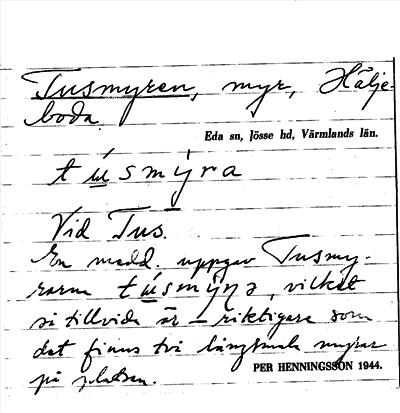 Tusmyren, myr, Hälje-
boda.
Eda sn, Jösse hd, Värmlands län.
túsmy̆ra
Vid Tus.
En medd. uppgav Tusmy-
rarna túsmy̆ṇa, vilket
så tillvida är riktigare som
det finns två långsmala myrar
på platsen.
PER HENNINGSSON 1944.